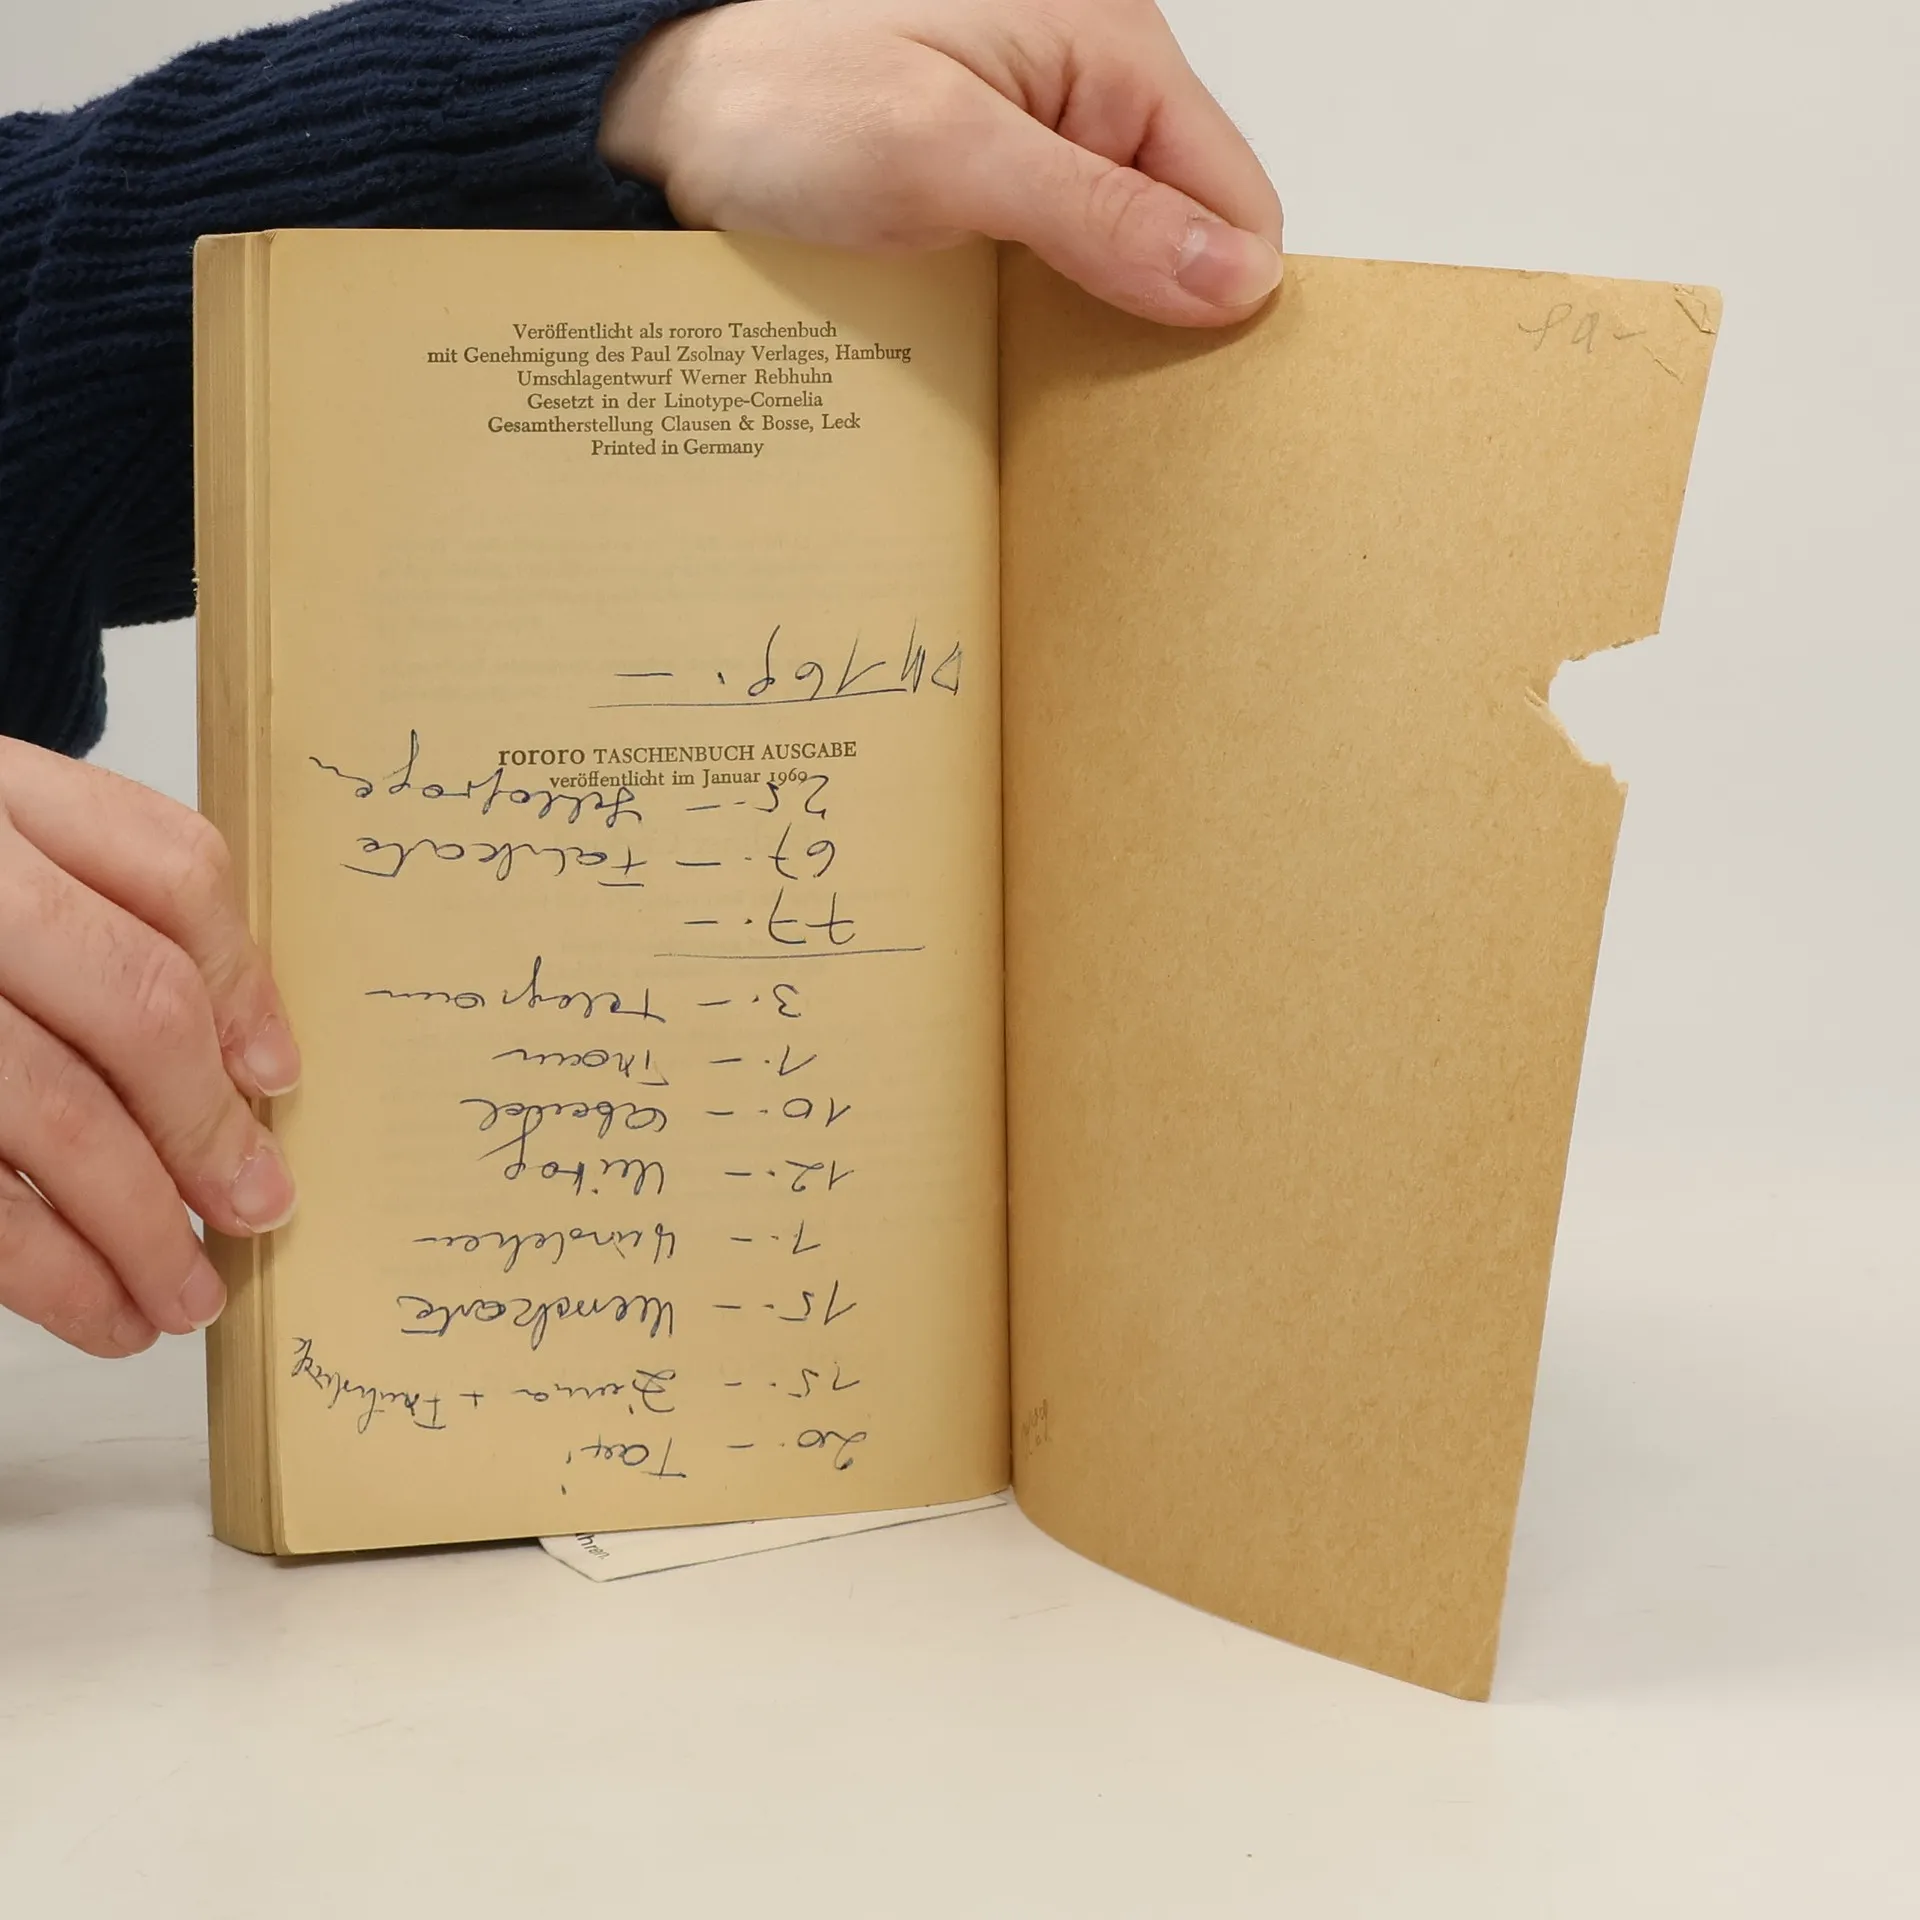 Veröffentlicht als rororo Taschenbuch
mit Genehmigung des Paul Zsolnay Verlages, Hamburg
Umschlagentwurf Werner Rebhuhn
Gesetzt in der Linotype-Cornelia
Gesamtherstellung Clausen & Bosse, Leck
Printed in Germany
rororo TASCHENBUCH AUSGABE
veröffentlicht im Januar 1969
20.– Taxi
15.– + Frühstück
15.–
1.– Würstchen
12.– Mittag
10.– Abend
1.– Tram
3.– Telegram
77.–
67.– Fahrkarte
25.–
DM 169.–
hren.